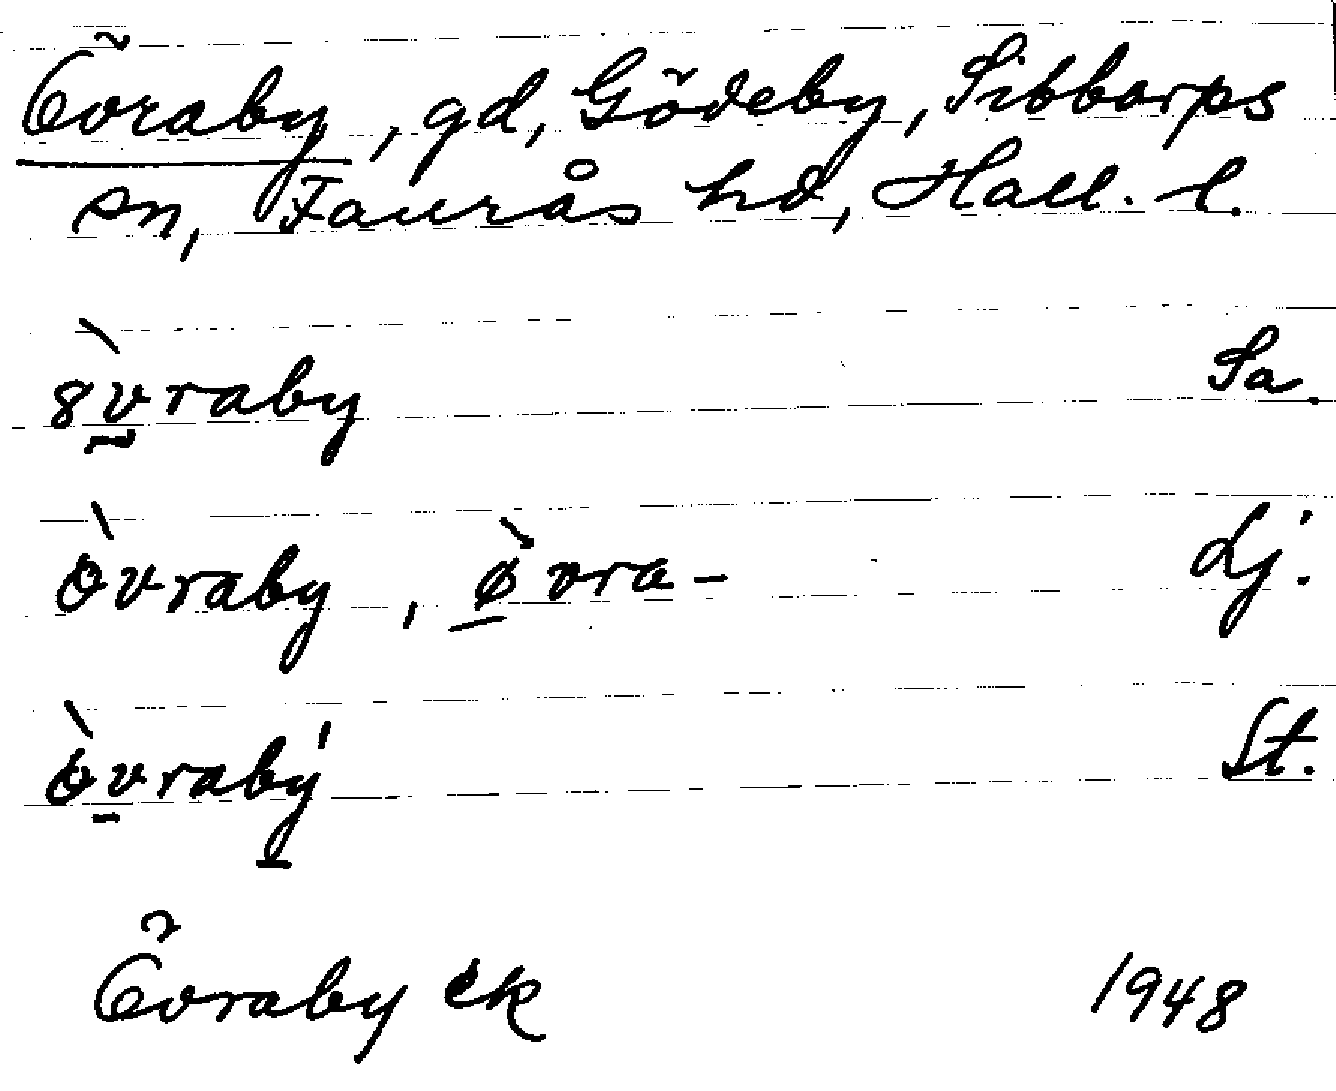 Övraby, gd, Gödeby, Sibbarps
sn, Faurås hd, Hall. l.
8̀v̱raby Sa.
ɵ̀vraby, ø̱̀vra- Lj.
ɵ̀v̱rabý̱ St.
Övraby ek 1948